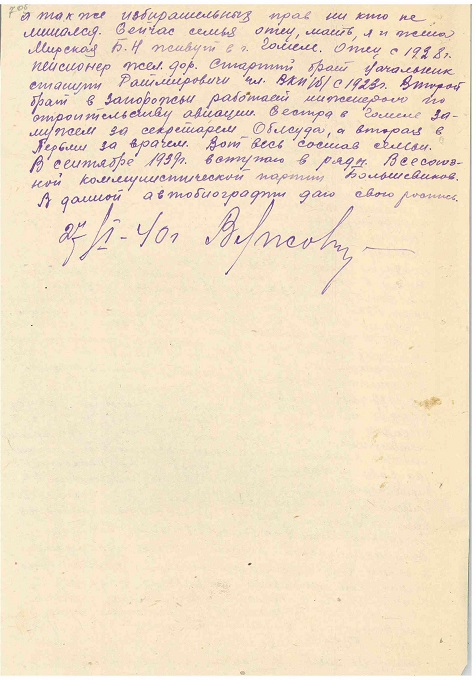 а так же избирательных прав ни кто не
лишался. Сейчас семья отец, мать, я и жена
Мирская Б. Н живут в г. Гомеле. Отец с 1928 г.
пенсионер жел. дор. Старший брат начальник
станции Ратмировичи чл. ВКП/б/ с 1923 г. Второй
брат в Запорожьи работает инженером по
строительству авиации. Сестра в Гомеле за-
мужем за секретарем Облсуда, а вторая в
Перьми за врачем. Вот весь состав семьи.
В сентябре 1939 г. вступаю в ряды Всесоюз-
ной коммунистической партии Большевиков.
В данной автобиографии даю свою роспись.
-40 г